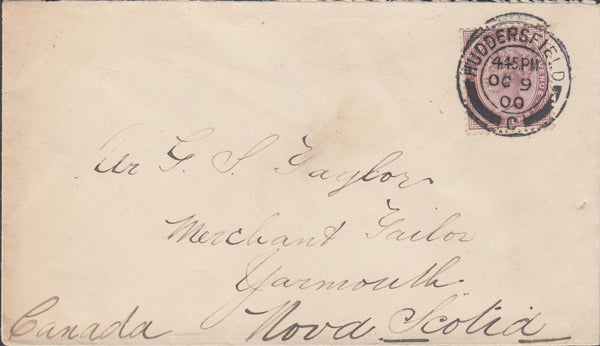 HUDDERSFIELD
4.45PM
OC 9
00
C
Mr G. S. Taylor
Merchant Tailor
Yarmouth
Nova Scotia
Canada